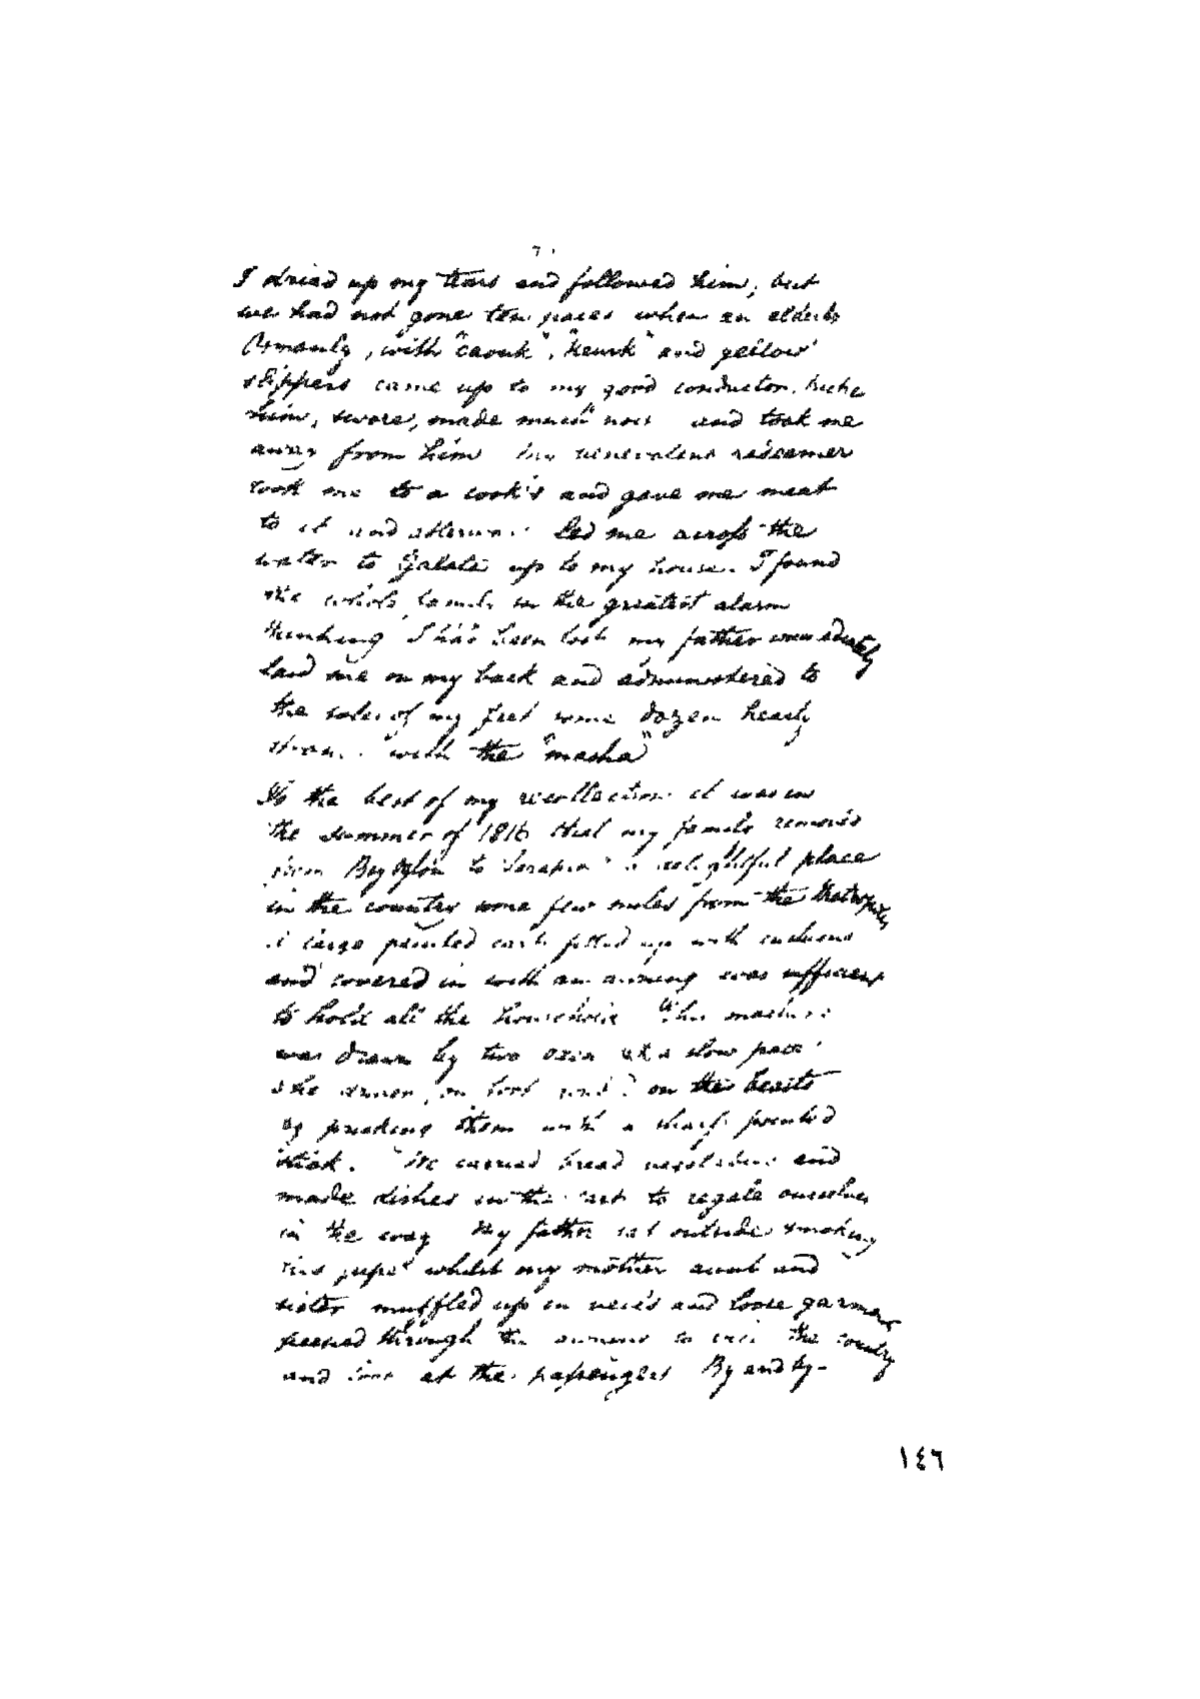 7.
I dried up my tears and followed him, but
we had not gone ten paces when an elderly
Osmanly, with "caouk", "keurk" and yellow
slippers came up to my good conductor,
him, swore, made much noise and took me
away from him My benevolent redeemer
took me to a cook's and gave me meat
to eat and led me across the
water to Galata up to my house. I found
the whole family in the greatest alarm
thinking I had been lost my father immediately
laid me on my back and administered to
the soles of my feet some dozen hearty
with the "masha"
To the best of my recollection it was in
the summer of 1816 that my family removed
from to Serapia a delightful place
in the country some few miles from the
A large painted cart fitted up with cushions
and covered in with an awning was sufficient
to hold all the household This machine
was drawn by two oxen at a slow pace
the driver, on foot on the beasts
by pricking them with a sharp pointed
stick. We carried bread and
made dishes in the cart to regale ourselves
in the way My father sat outside smoking
his pipe whilst my mother aunt and
sister muffled up in veils and loose garments
peeped through the to the country
and at the passengers By and by-
١٤٦